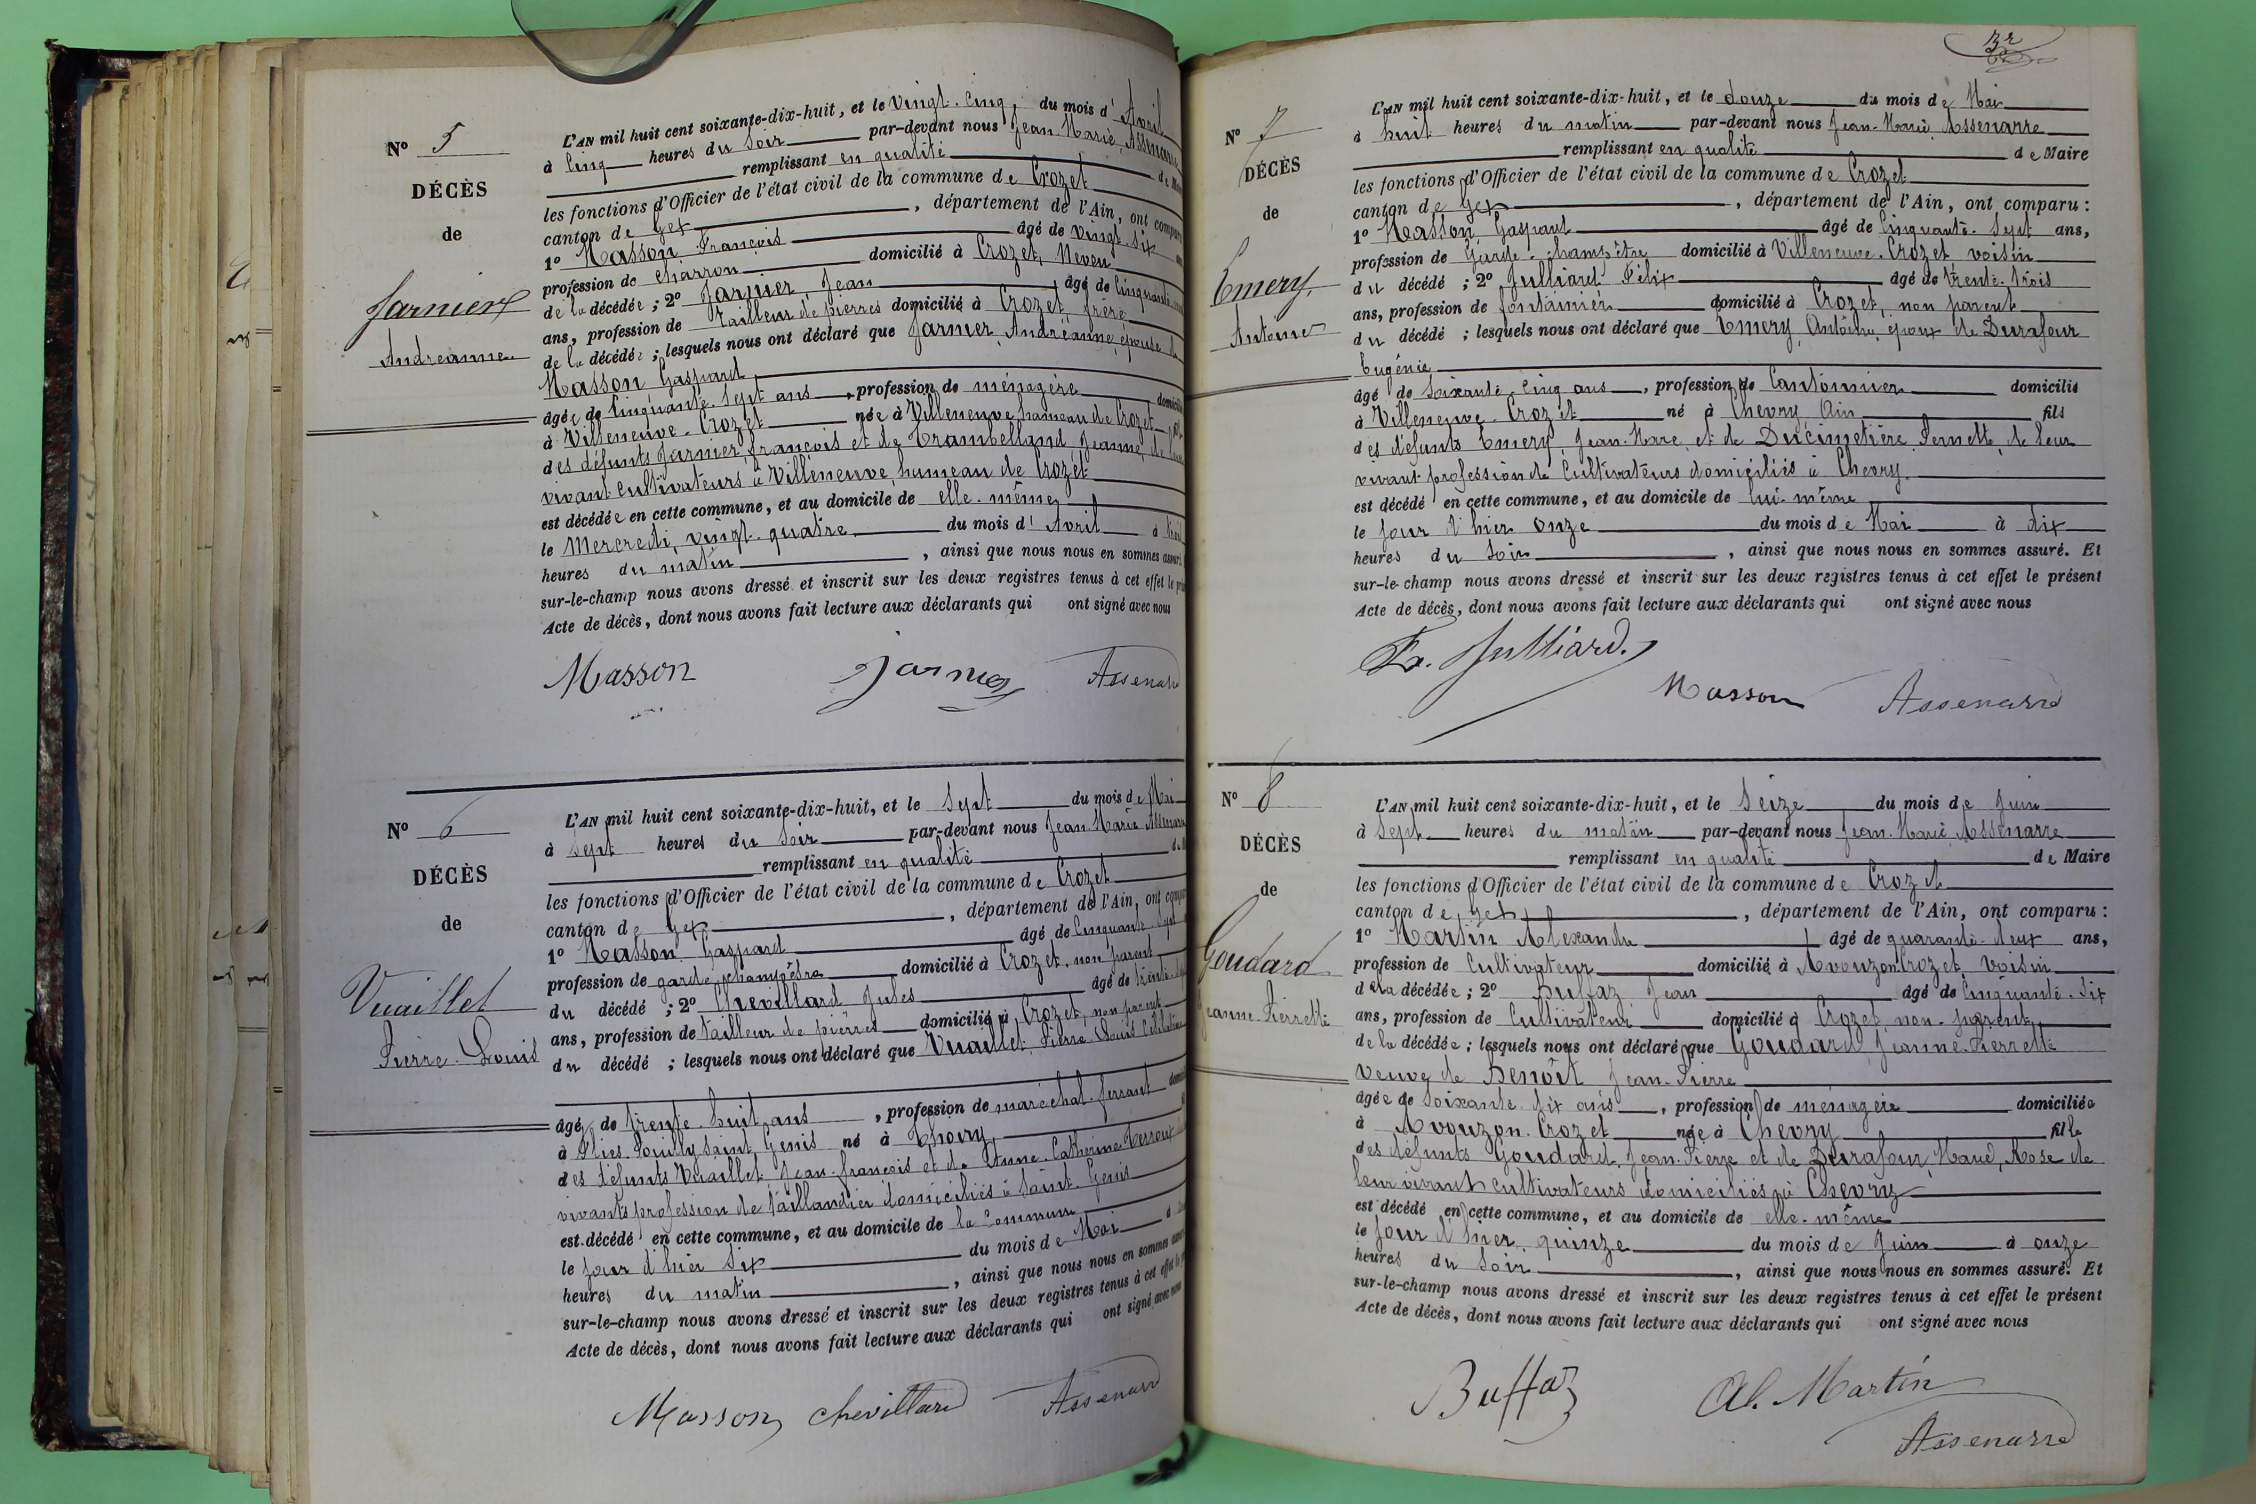 Nº 5
DÉCÈS
de
Jarnier
Andréanne
L'AN mil huit cent soixante-dix-huit, et le Vingt-cinq, du mois d'Avril
à Cinq heures du Soir par-devant nous Jean Marie Assenarre
remplissant en qualité de
les fonctions d'Officier de l'état civil de la commune de Crozet
canton de Gex, département de l'Ain, ont comparu
1º Masson François âgé de vingt-six
profession de charron domicilié à Crozet, Neveu
de la décédée ; 2º Jarnier Jean âgé de Cinquante
ans, profession de Tailleur de pierres domicilié à Crozet, frère
de la décédée ; lesquels nous ont déclaré que Jarnier Andréanne, épouse de
Masson Gaspard
âgée de Cinquante-sept ans, profession de ménagère
à Villeneuve-Crozet née à Villeneuve hameau de Crozet
des défunts Jarnier, françois et de Brambelland Jeanne, de leur
vivant Cultivateurs à Villeneuve hameau de Crozet
est décédée en cette commune, et au domicile de elle-même
le Mercredi, vingt-quatre du mois d'Avril à
heures du matin, ainsi que nous nous en sommes assuré
sur-le-champ nous avons dressé et inscrit sur les deux registres tenus à cet effet le
Acte de décès, dont nous avons fait lecture aux déclarants qui ont signé avec nous
Masson Jarnier Assenarre
Nº 6
DÉCÈS
de
Vuaillet
Pierre-Louis
L'AN mil huit cent soixante-dix-huit, et le Sept du mois de Mai
à Sept heures du Soir par-devant nous Jean Marie Assenarre
remplissant en qualité
les fonctions d'Officier de l'état civil de la commune de Crozet
canton de Gex, département de l'Ain, ont
1º Masson Gaspard âgé de Cinquante-sept
profession de garde-champêtre domicilié à Crozet, non parent
du décédé ; 2º Chevillard Jules âgé de trente
ans, profession de Tailleur de pierres domicilié à Crozet, non parent
du décédé ; lesquels nous ont déclaré que Vuaillet Pierre Louis Célibataire
âgé de trente-huit ans, profession de maréchal-ferrant
à Pouilly Saint Genis né à Thoiry
des défunts Vuaillet Jean-françois et de Anne-Catherine
vivants profession de Taillandier domiciliés à Saint-Genis
est décédé en cette commune, et au domicile de la Commune
le jour d'hier Six du mois de Mai à
heures du matin, ainsi que nous nous en sommes
sur-le-champ nous avons dressé et inscrit sur les deux registres tenus à cet effet
Acte de décès, dont nous avons fait lecture aux déclarants qui ont signé avec nous
Masson Chevillard Assenarre
32
Nº 7
DÉCÈS
de
Emery
Antoine
L'AN mil huit cent soixante-dix-huit, et le douze du mois de Mai
à huit heures du matin par-devant nous Jean-Marie Assenarre
remplissant en qualité de Maire
les fonctions d'Officier de l'état civil de la commune de Crozet
canton de Gex, département de l'Ain, ont comparu :
1º Masson Gaspard âgé de Cinquante-Sept ans,
profession de Garde-champêtre domicilié à Villeneuve-Crozet voisin
du décédé ; 2º Julliard Félix âgé de trente-trois
ans, profession de fontainier domicilié à Crozet, non parent
du décédé ; lesquels nous ont déclaré que Emery Antoine, époux de Durafour
Eugénie
âgé de Soixante-cinq ans, profession de Cantonnier domicilié
à Villeneuve-Crozet né à Chevry Ain fils
des défunts Emery Jean-Marc et de Ducimetière Pernette de leur
vivant profession de Cultivateurs domiciliés à Chevry
est décédé en cette commune, et au domicile de lui-même
le Jour d'hier onze du mois de Mai à dix
heures du Soir, ainsi que nous nous en sommes assuré. Et
sur-le-champ nous avons dressé et inscrit sur les deux registres tenus à cet effet le présent
Acte de décès, dont nous avons fait lecture aux déclarants qui ont signé avec nous
Julliard.
Masson Assenarre
Nº 8
DÉCÈS
de
Goudard
Jeanne-Pierrette
L'AN mil huit cent soixante-dix-huit, et le Seize du mois de Juin
à Sept heures du matin par-devant nous Jean-Marie Assenarre
remplissant en qualité de Maire
les fonctions d'Officier de l'état civil de la commune de Crozet
canton de Gex, département de l'Ain, ont comparu :
1º Martin Alexandre âgé de quarante-deux ans,
profession de Cultivateur domicilié à Avouzon Crozet Voisin
de la décédée ; 2º Buffaz Jean âgé de Cinquante-six
ans, profession de Cultivateur domicilié à Crozet, non-parent
de la décédée ; lesquels nous ont déclaré que Goudard Jeanne-Pierrette
veuve de Benoît Jean-Pierre
âgée de Soixante-dix ans, profession de ménagère domiciliée
à Avouzon-Crozet née à Chevry fille
des défunts Goudard Jean-Pierre et de Durafour Marie Rose de
leur vivant cultivateurs domiciliés à Chevry
est décédé en cette commune, et au domicile de elle-même
le Jour d'hier quinze du mois de Juin à onze
heures du Soir, ainsi que nous nous en sommes assuré. Et
sur-le-champ nous avons dressé et inscrit sur les deux registres tenus à cet effet le présent
Acte de décès, dont nous avons fait lecture aux déclarants qui ont signé avec nous
Buffaz Al. Martin
Assenarre